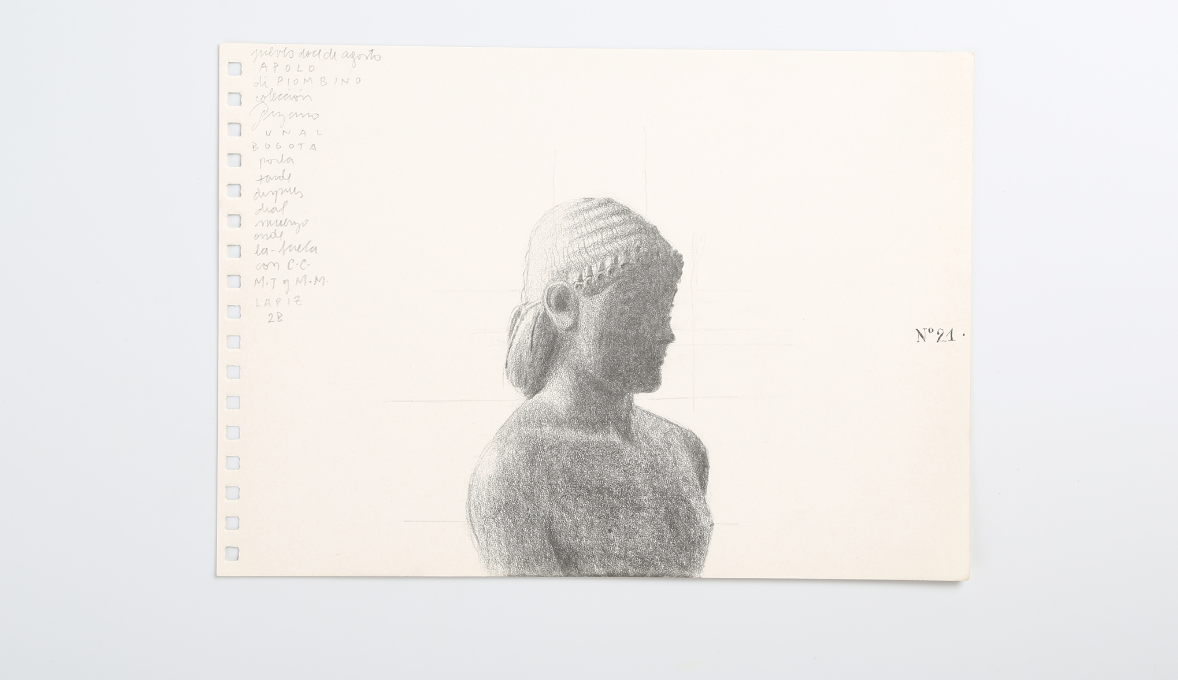 jueves doce de agosto
APOLO
di PIOMBINO
colección
Pizano
UNAL
BOGOTA
por la
tarde
después
del
almuerzo
con C.C.
M.T y M.M.
LAPIZ
2B
Nº 21.